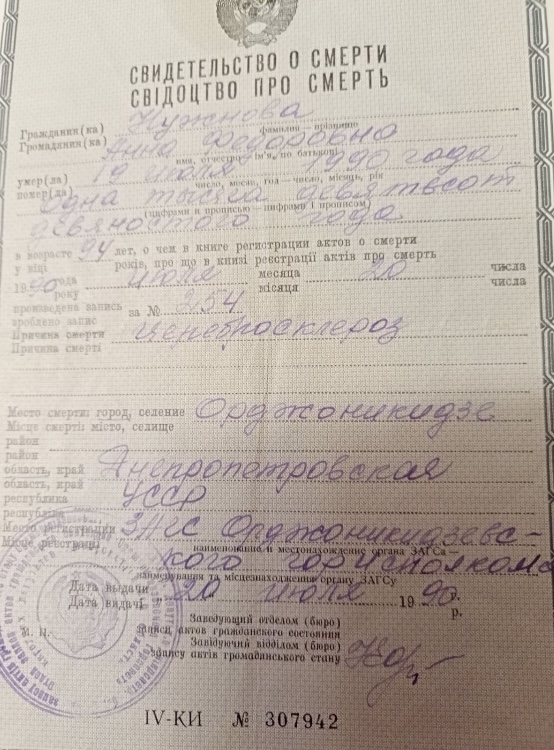 СВИДЕТЕЛЬСТВО О СМЕРТИ
СВІДОЦТВО ПРО СМЕРТЬ
Гражданин(ка) Нужнова
Громадянин(ка) фамилия — прізвище
Анна Федоровна
имя, отчество — ім'я, по батькові
умер(ла) 19 июля 1990 года
помер(ла) число, месяц, год — число, місяць, рік
Одна тысяча девятьсот
(цифрами и прописью — цифрами і прописом)
девяностого года
в возрасте 94 лет, о чем в книге регистрации актов о смерти
у віці років, про що в книзі реєстрації актів про смерть
1990 года июля месяца 20 числа
року місяця числа
произведена запись за № 254
зроблено запис
Причина смерти Церебросклероз
Причина смерті
Место смерти: город, селение Орджоникидзе
Місце смерті: місто, селище
район
район
область, край Днепропетровская
область, край
республика УССР
республіка
Место регистрации ЗАГС Орджоникидзевс-
Місце реєстрації
наименование и местонахождение органа ЗАГСа —
кого горисполкома
найменування та місцезнаходження органу ЗАГСу
Дата выдачи 20 июля 1990 г.
Дата видачі р.
Заведующий отделом (бюро)
М. П. записи актов гражданского состояния
Завідуючий відділом (бюро)
запису актів громадянського стану
IV-КИ № 307942